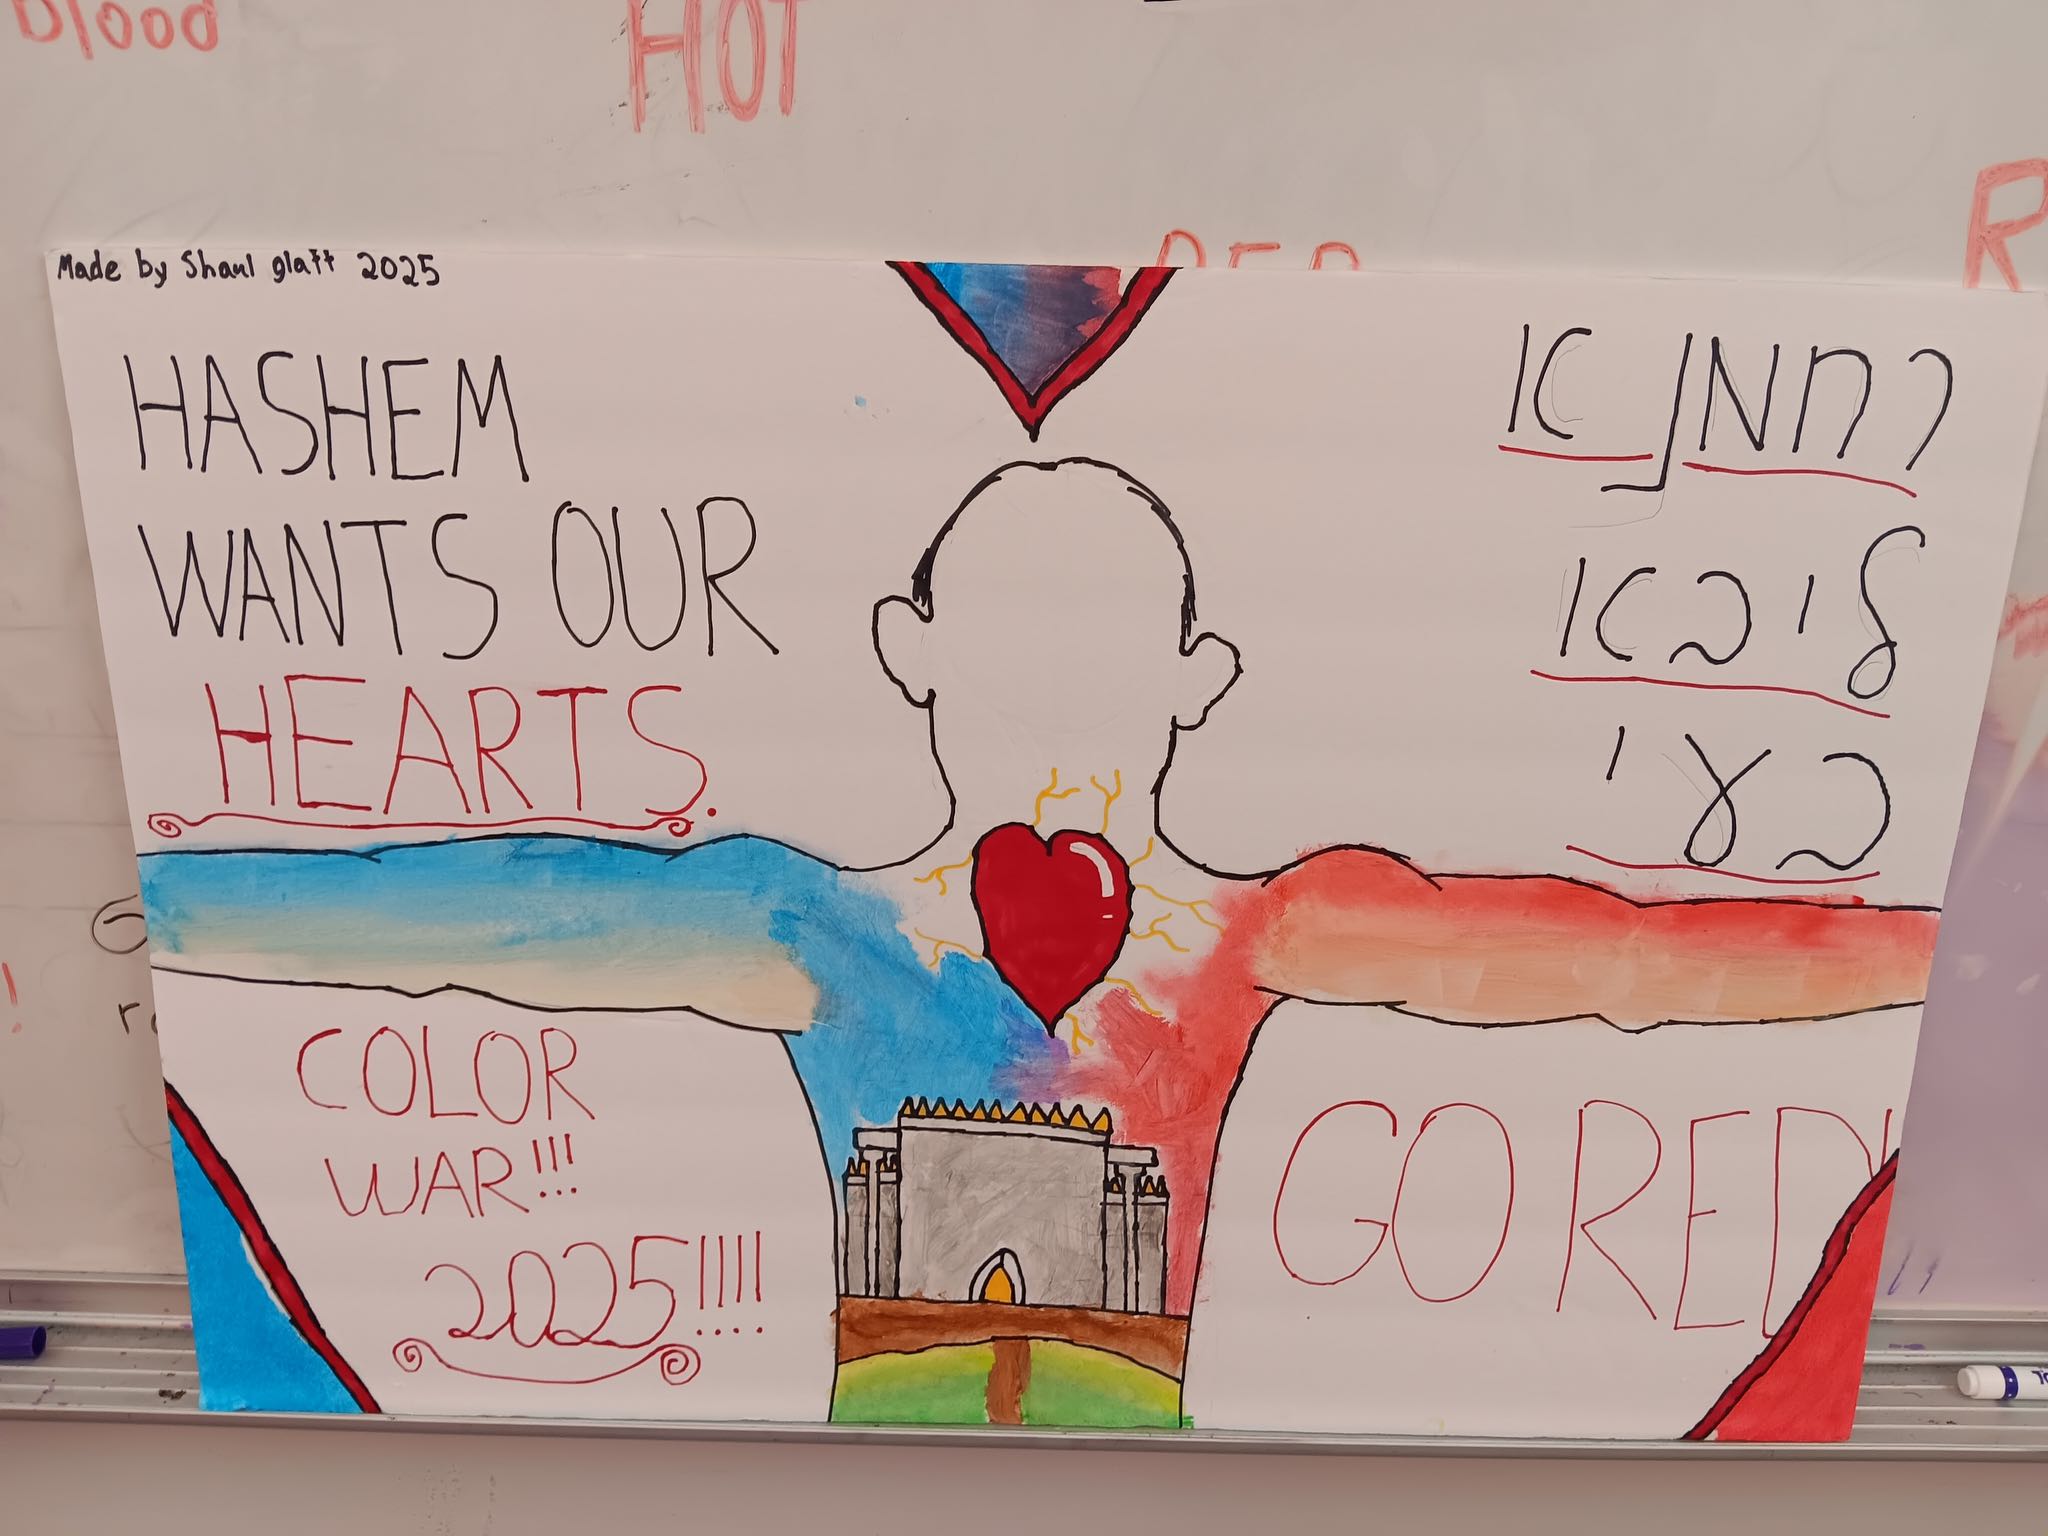 Blood
HOT
RED
R
Made by Shaul glatt 2025
HASHEM
WANTS OUR
HEARTS.
רחמנא
ליבא
בעי
COLOR
WAR!!!
2025!!!!
GO RED!